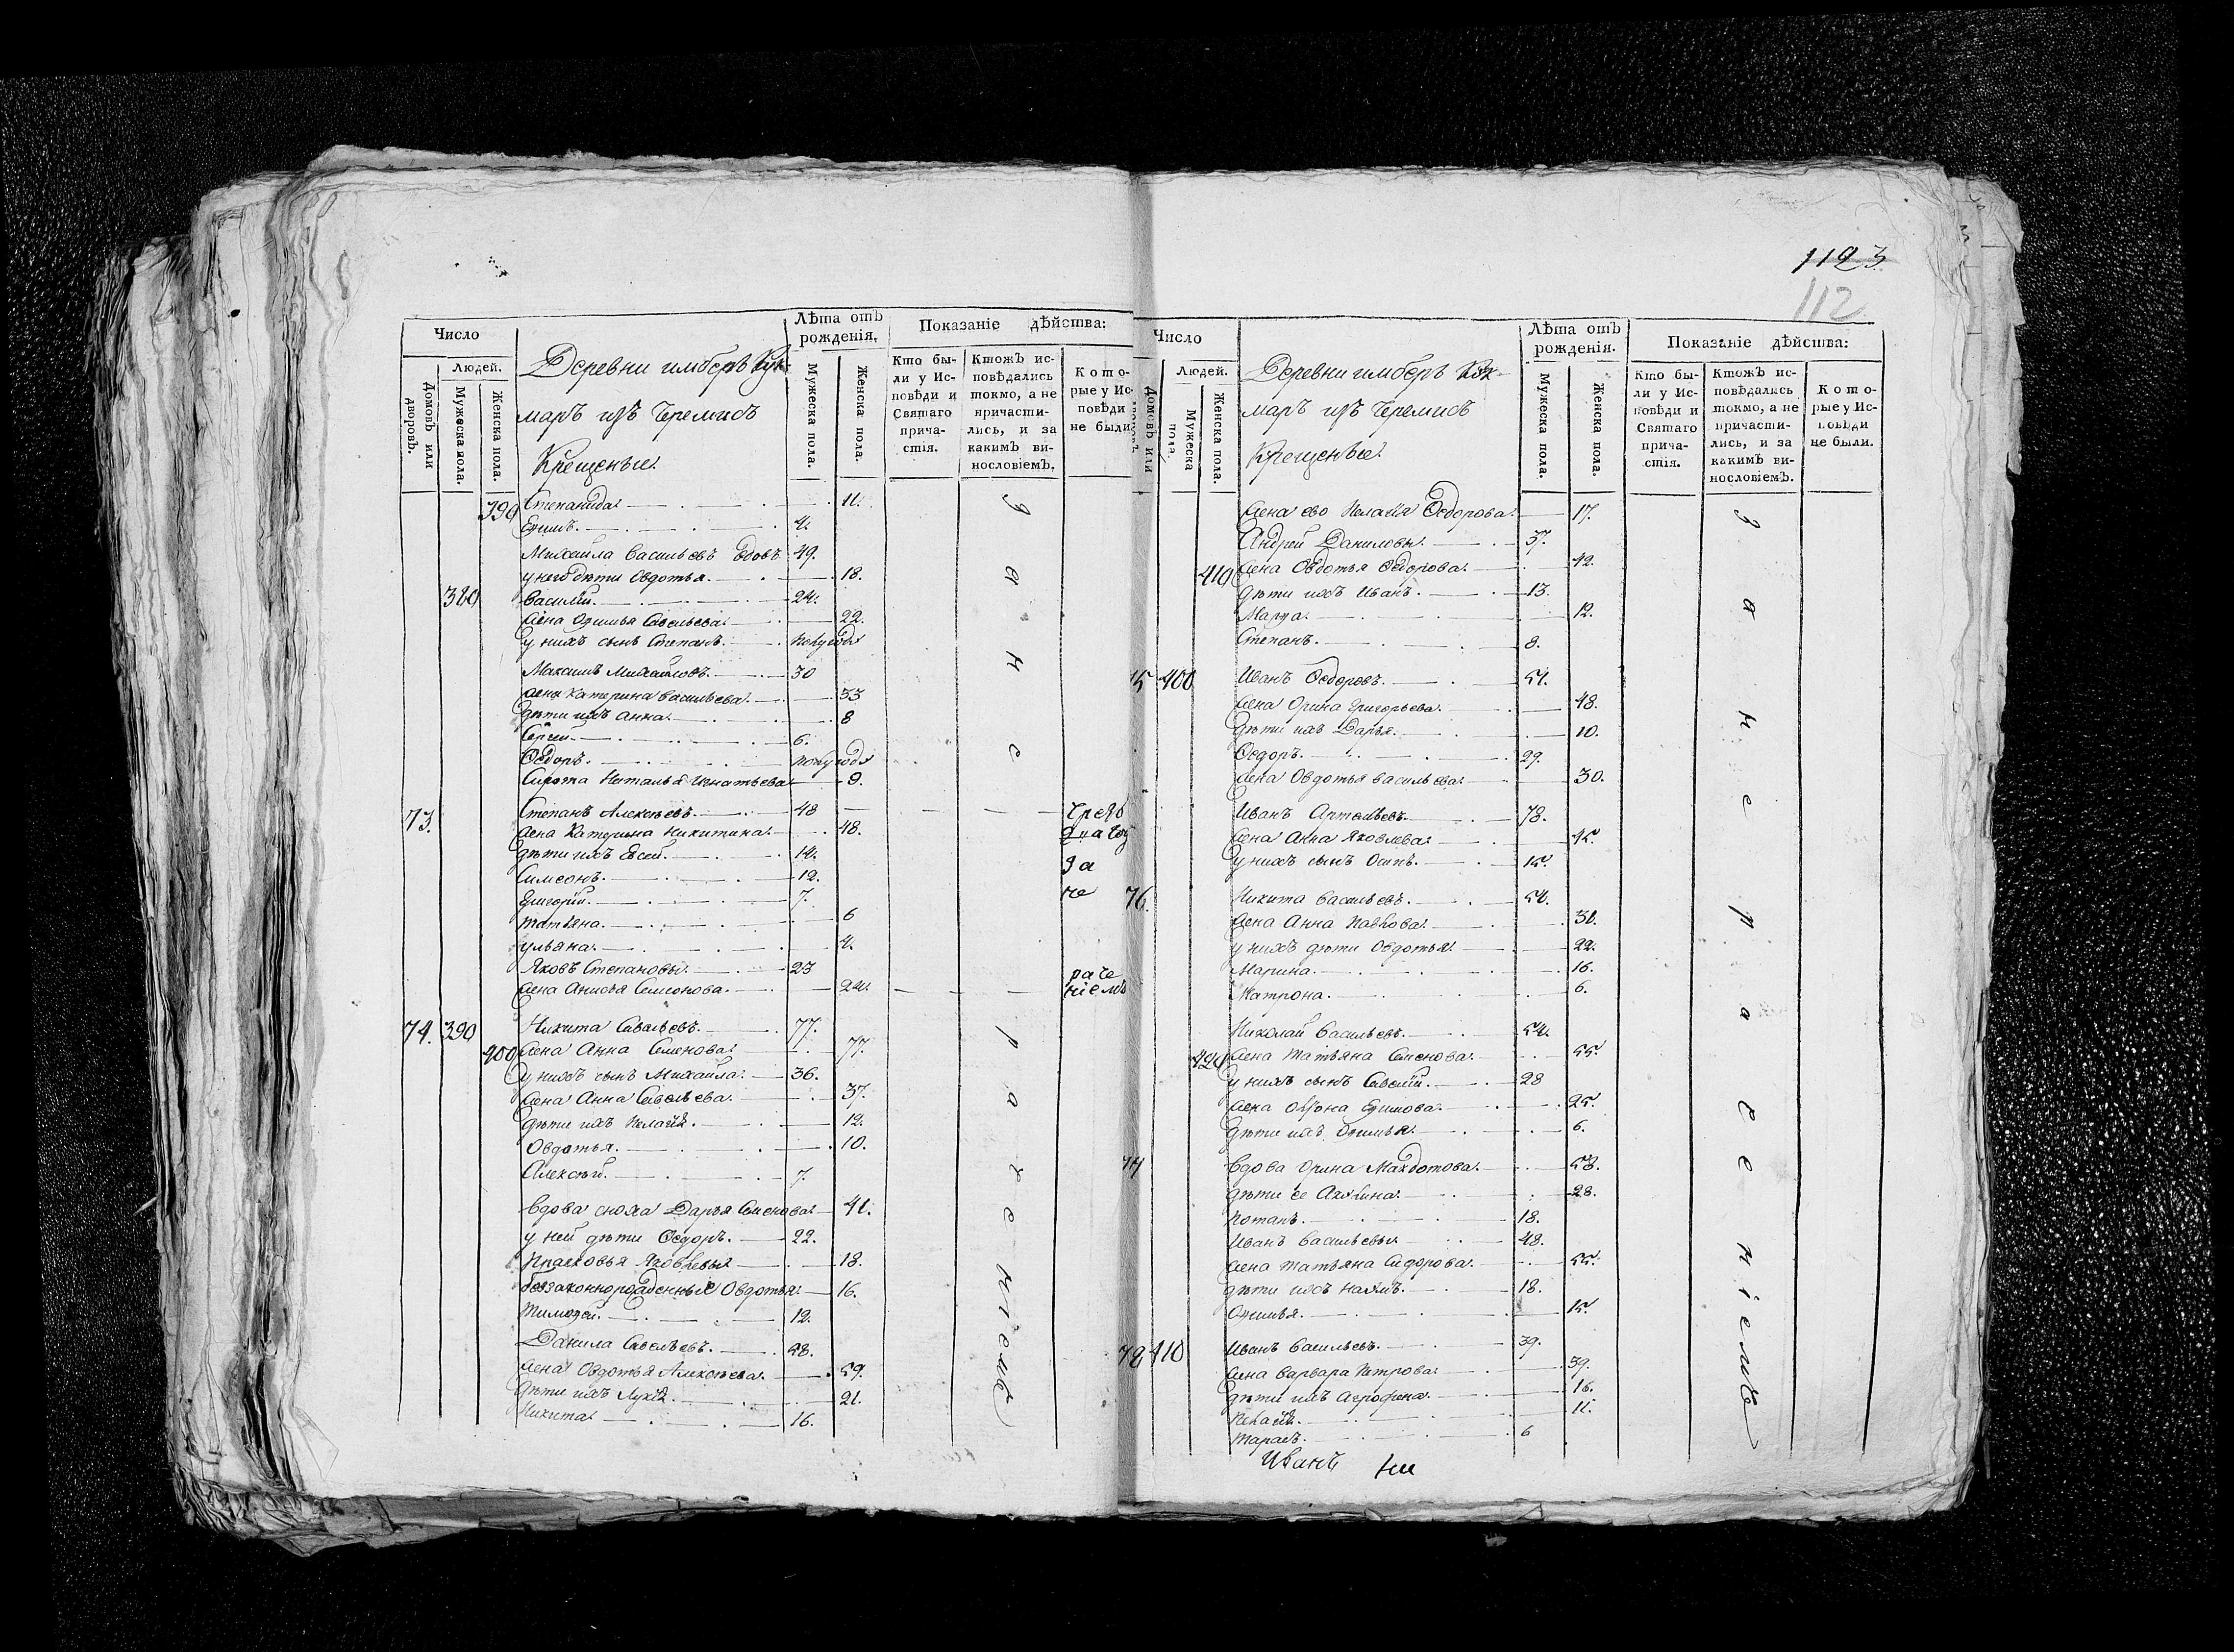 1123
112
Число
Людей.
Домовъ или дворовъ.
Мужеска пола.
Женска пола.
Деревни имберъ Кук-
маръ изъ Черемисъ
Крещеные
Лѣта отъ рожденія.
Мужеска пола.
Женска пола.
Показаніе дѣйства:
Кто бы-
ли у Ис-
повѣди и
Святаго
прича-
стія.
Ктожъ ис-
повѣдались
токмо, а не
причасти-
лись, и за
какимъ ви-
нословіемъ.
Кото-
рые у Ис-
повѣди
не были
390 Степанида 11.
Ефимъ 4.
Михайла Васильевъ вдовъ 49.
у него дѣти Овдотья 18.
380 Василій 24.
жена Офимья Савельева 22.
у нихъ сынъ Степанъ полугода
Максимъ Михайловъ 30
жена Катерина Васильева 33
дѣти ихъ Анна 8
Сергей 6.
Ѳедоръ полугода
Сирота Наталья Игнатьева 9.
73. Степанъ Алексѣевъ 48
жена Катерина Никитина 48.
дѣти ихъ Евсей 14.
Симеонъ 12.
Григорій 7.
Татьяна 6
Ульяна 4.
Яковъ Степановъ 23
жена Анисья Семенова 24.
74. 390 Никита Савельевъ 77.
400 жена Анна Семенова 77.
у нихъ сынъ Михайла 36.
жена Анна Савельева 37.
дѣти ихъ Пелагѣя 12.
Овдотья 10.
Алексѣй 7.
вдова сноха Дарья Семенова 41.
у ней дѣти Ѳедоръ 22.
Прасковья Яковлевы 18.
беззаконнорожденные Овдотья 16.
Тимоѳей 12.
Данила Савельевъ 58.
жена Овдотья Алексѣева 59.
дѣти ихъ Лукія 21.
Никита 16.
за не раченіемъ
за не раченіемъ
Число
Людей.
Домовъ или дворовъ.
Мужеска пола.
Женска пола.
Деревни имберъ Кук-
маръ изъ Черемисъ
Крещеные
Лѣта отъ рожденія.
Мужеска пола.
Женска пола.
Показаніе дѣйства:
Кто бы-
ли у Ис-
повѣди и
Святаго
прича-
стія.
Ктожъ ис-
повѣдались
токмо, а не
причасти-
лись, и за
какимъ ви-
нословіемъ.
Кото-
рые у Ис-
повѣди
не были.
жена ево Пелагѣя Ѳедорова 17.
Андрей Даниловъ 37.
410 жена Овдотья Ѳедорова 42.
дѣти ихъ Иванъ 13.
Марѳа 12.
Степанъ 8.
75 400 Иванъ Ѳедоровъ 51.
жена Орина Григорьева 48.
дѣти ихъ Дарья 10.
Ѳедоръ 29.
жена Овдотья Васильева 30.
Иванъ Артемьевъ 78.
жена Анна Яковлева 45.
у нихъ сынъ Осипъ 15.
76. Никита Васильевъ 54.
жена Анна Павлова 50.
у нихъ дѣти Овдотья 22.
Марина 16.
Матрона 6.
Николай Васильевъ 54.
420 жена Татьяна Семенова 55.
у нихъ сынъ Савелій 28
жена Ефимова 25.
дѣти ихъ Офимья 6.
77 вдова Орина 53.
дѣти ее Акулина 28.
Потапъ 18.
Иванъ Васильевы 48.
жена Татьяна Сидорова 55.
дѣти ихъ Наумъ 18.
Офимья 15.
78 410 Иванъ Васильевъ 39.
жена Варвара Петрова 39.
дѣти ихъ Агрофена 16.
Пелагѣя 11.
Тарасъ 6
за не раченіемъ
Иванъ